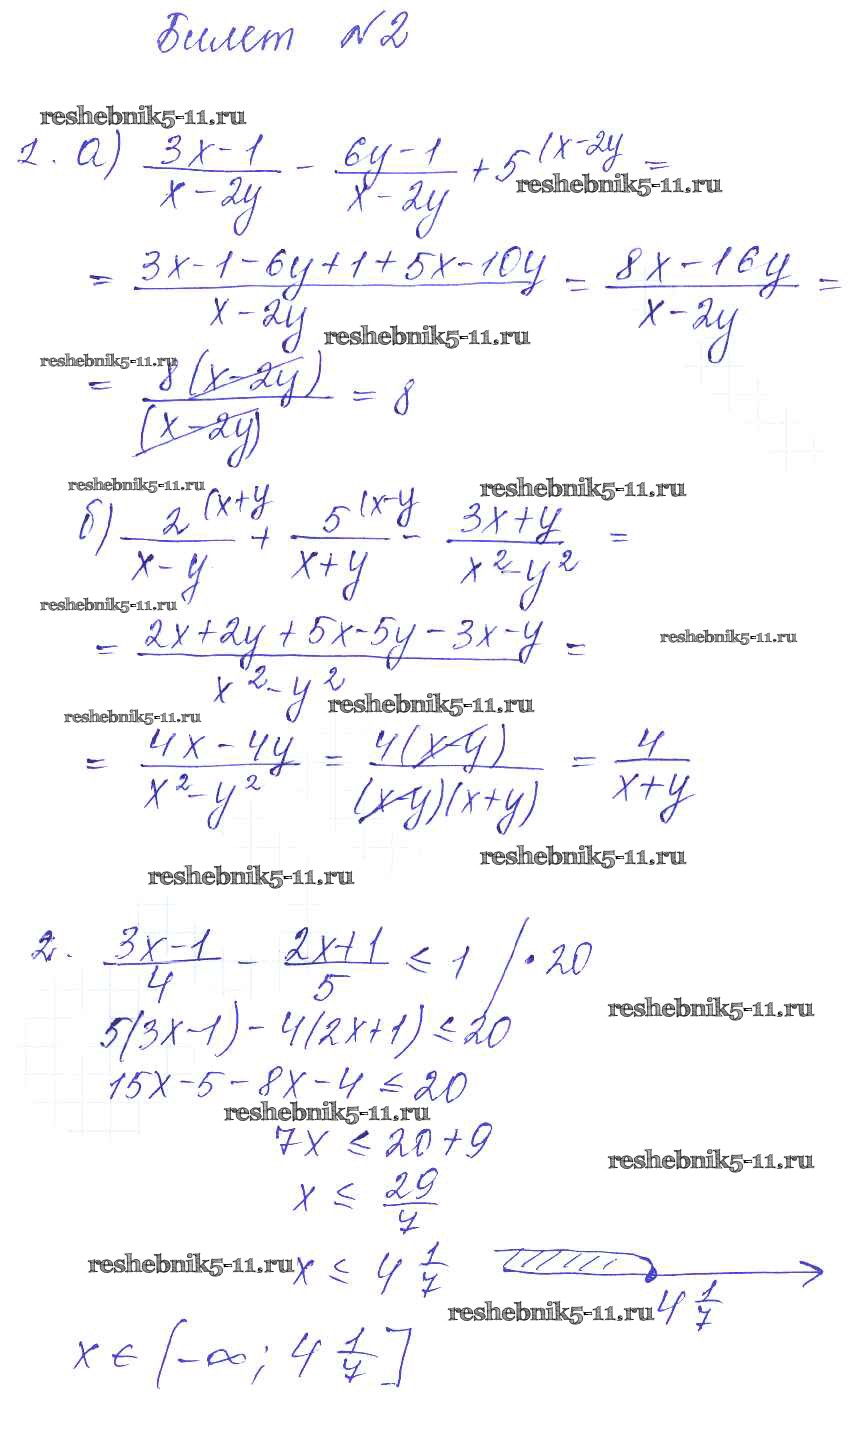 Билет №2
reshebnik5-11.ru
1. а) (3x-1)/(x-2y) - (6y-1)/(x-2y) + 5 (x-2y =
reshebnik5-11.ru
= (3x-1-6y+1+5x-10y)/(x-2y) = (8x-16y)/(x-2y) =
reshebnik5-11.ru
reshebnik5-11.ru
= 8(x-2y)/(x-2y) = 8
reshebnik5-11.ru
reshebnik5-11.ru
б) 2 (x+y/(x-y) + 5 (x-y/(x+y) - (3x+y)/(x²-y²) =
reshebnik5-11.ru
= (2x+2y+5x-5y-3x-y)/(x²-y²) =
reshebnik5-11.ru
reshebnik5-11.ru
reshebnik5-11.ru
= (4x-4y)/(x²-y²) = 4(x-y)/(x-y)(x+y) = 4/(x+y)
reshebnik5-11.ru
reshebnik5-11.ru
2. (3x-1)/4 - (2x+1)/5 ≤ 1 / · 20
reshebnik5-11.ru
5(3x-1) - 4(2x+1) ≤ 20
15x-5-8x-4 ≤ 20
reshebnik5-11.ru
7x ≤ 20+9
reshebnik5-11.ru
x ≤ 29/7
reshebnik5-11.ru
x ≤ 4 1/7
4 1/7
reshebnik5-11.ru
x ∈ (-∞; 4 1/7]